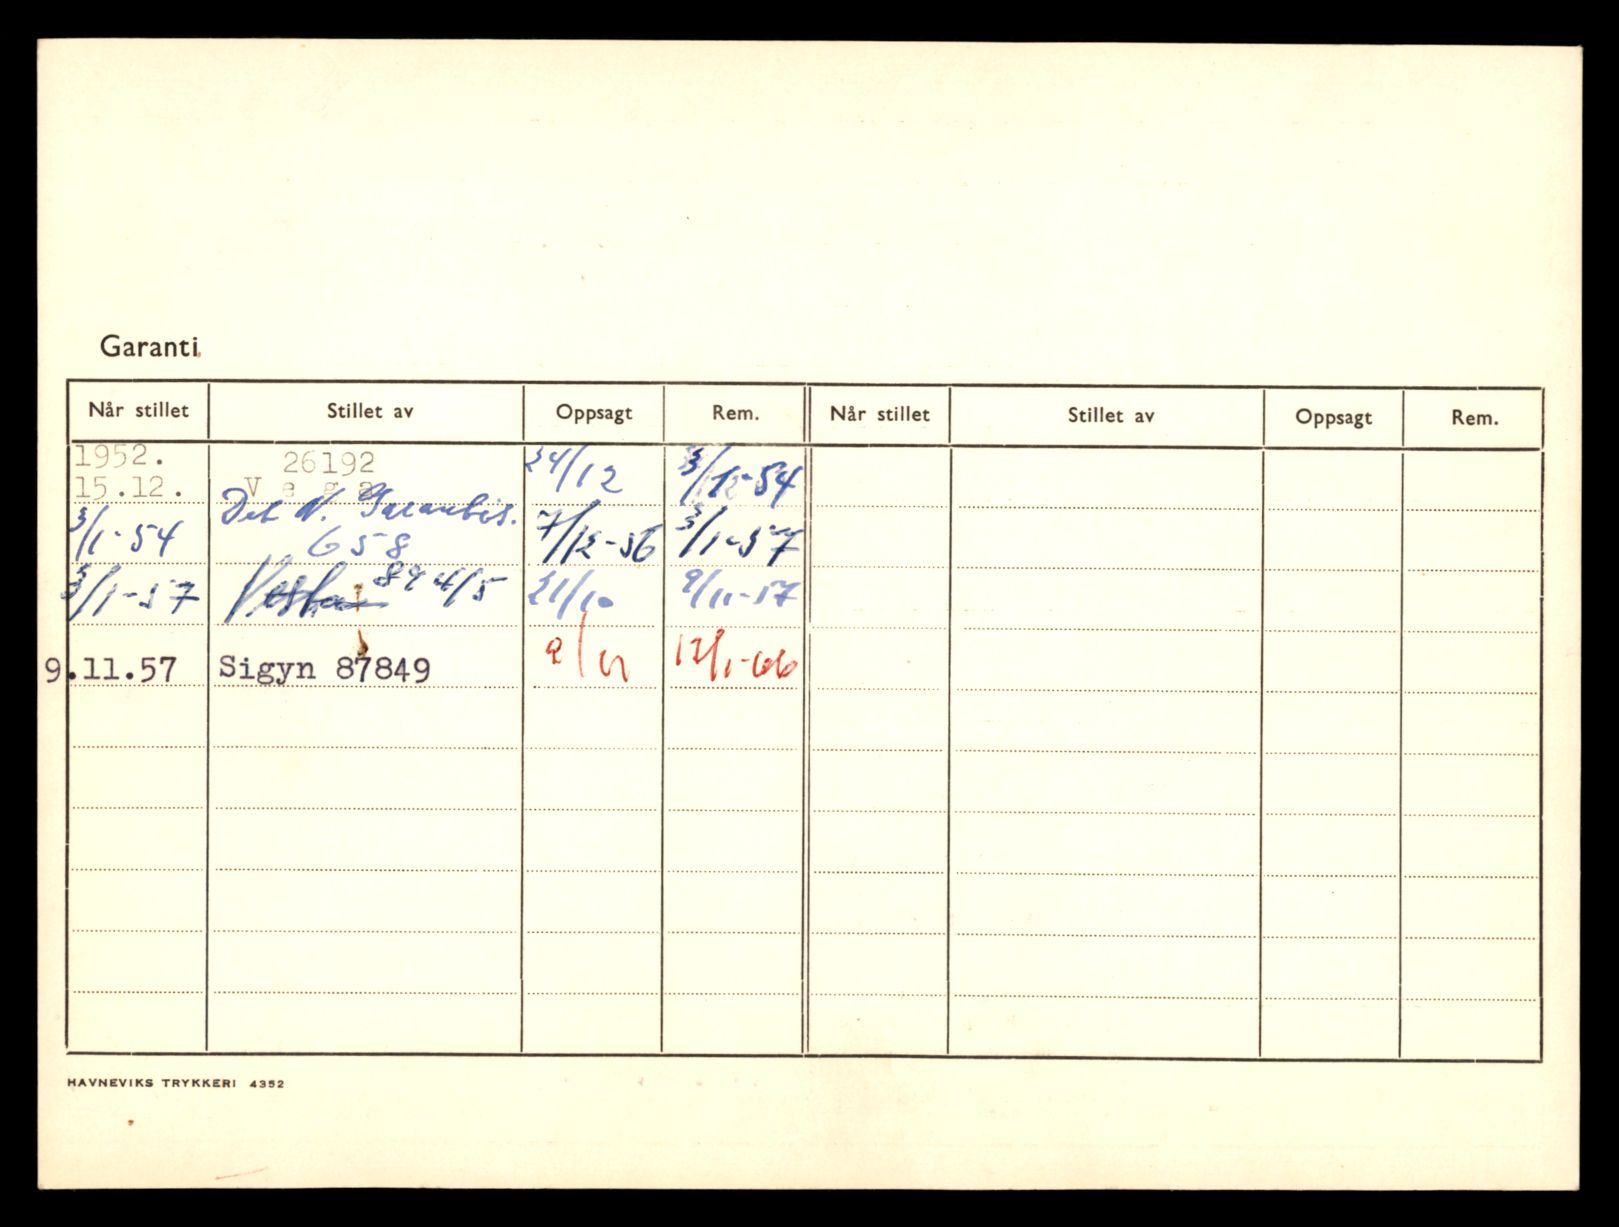 Garanti
Når stillet Stillet av Oppsagt Rem. Når stillet Stillet av Oppsagt Rem.
1952. 26192 24/12 3/12-54
15.12. Vega
3/1-54 Det N. Garantis. 7/12-56 3/1-57
658
3/1-57 Vesta 894/5 21/10 9/11-57
9.11.57 Sigyn 87849 9/11 12/1-66
HAVNEVIKS TRYKKERI 4352